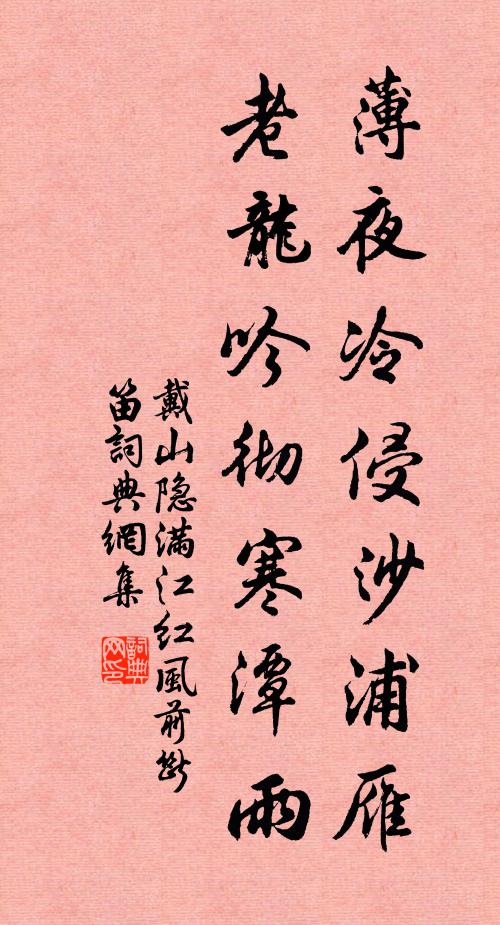 薄夜冷侵沙浦雁
老龍吟彻寒潭雨
戴山隐满江红風前斷
笛詞典網集
詞典
网印